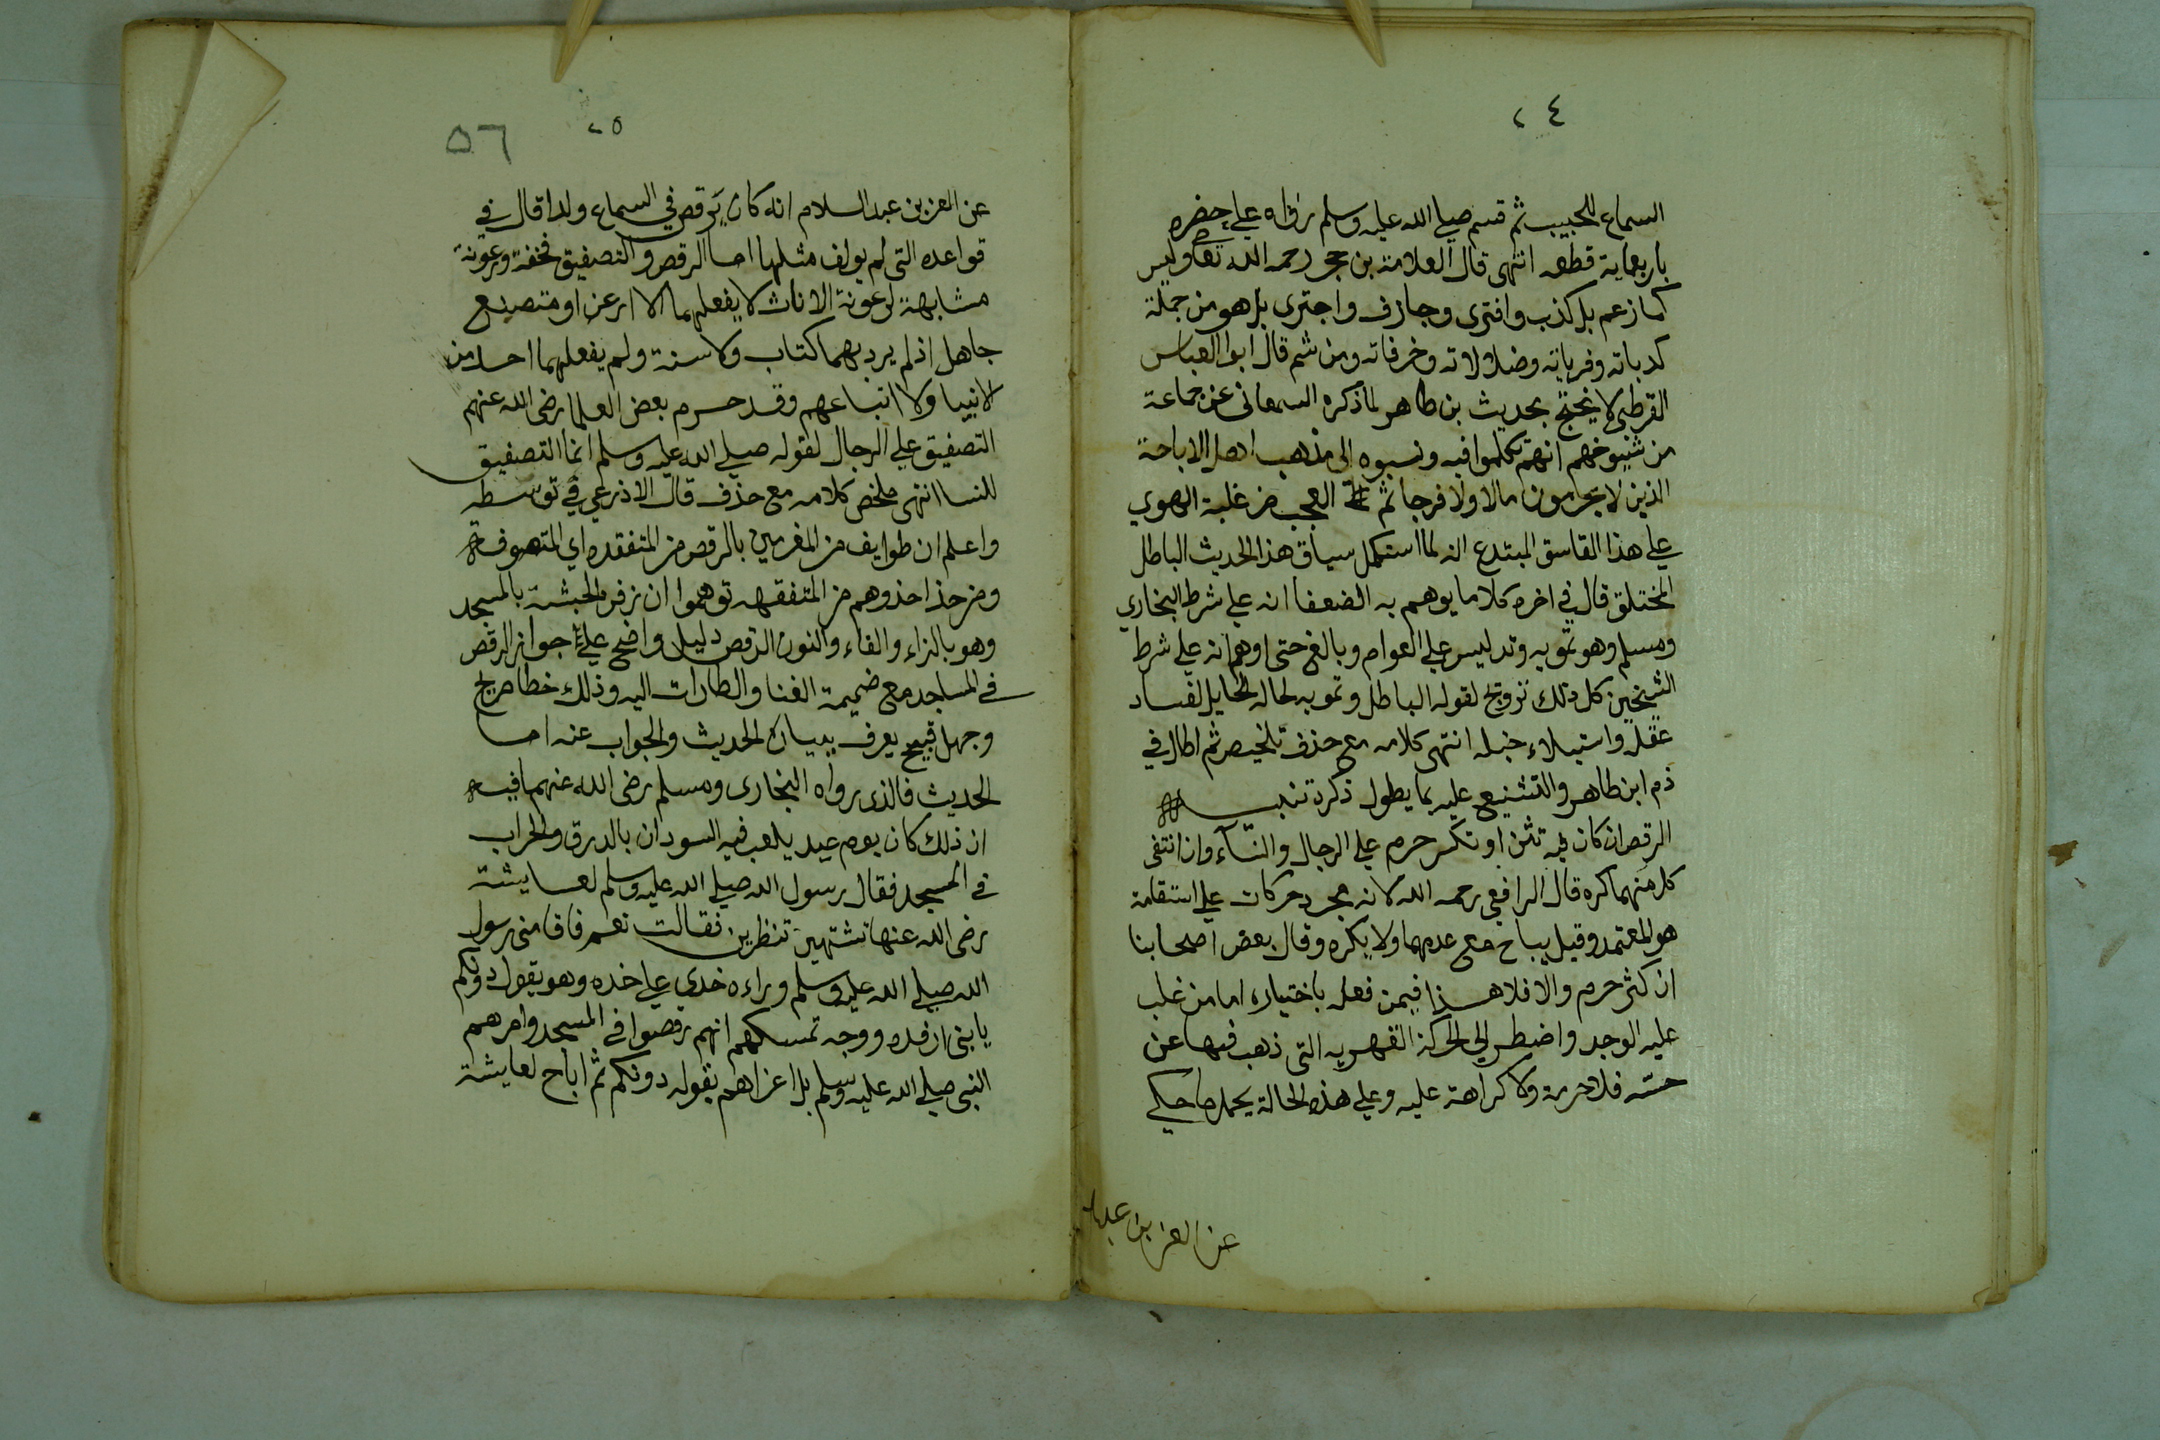 ٢٤
السماع للحبيب ثم قسم صلي الله عليه وسلم رداه علي حضره
باربعماية قطعه انتهى قال العلامة بن حجر رحمه الله تعا وليس
كما زعم بل كذب وافترى وجازف واجترى بل هو من جملة
كدباته وفرياته وضلالاته وخرفاته ومن ثم قال ابوا العباس
القرطبي لا يحتج بحديث بن طاهر لما ذكره السمعاني عن جماعة
من شيوخهم انهم تكلموا فيه ونسبوه الى مذهب اهل الاباحة
الذين لا يحرمون مالا ولا فرجا ثم العجب من غلبة الهوي
علي هذا الفاسق المبتدع انه لما استكمل سياق هذا الحديث الباطل
المختلق قال في اخره كلاما يوهم به الضعفا انه علي شرط البخاري
ومسلم وهو تمويه وتدليس علي العوام وبالغ حتى اوهم انه علي شرط
الشيخين كل ذلك ترويج لقوله الباطل وتمويه لحاله الحايل لفساد
عقله واستيلاء خبله انتهى كلامه مع حذف تلخيص ثم اطال في
ذم ابن طاهر والتشنيع عليه بما يطول ذكره تنبيه
الرقص ان كان فيه تثن او تكسر حرم علي الرجال والنسآء وان انتفى
كل منهما كره قال الرافعي رحمه الله لانه مجرد حركات علي استقامة
هو المعتمد وقيل يباح مع عدمهما ولا يكره وقال بعض اصحابنا
ان كثر حرم والا فلا هذا فيمن فعله باختياره اما من غلب
عليه الوجد واضطر الي الحركة القهريه التى ذهب فيها عن
حسه فلا حرمة ولا كراهة عليه وعلي هذه الحالة يحمل ما حكي
عن العز بن عبد
٢٥
٥٦
عن العز بن عبد السلام انه كان يرقص في السماع ولدا قال في
قواعده التى لم يولف مثلها اما الرقص والتصفيق فخفة ورعونة
مشابهة لرعونة الاناث لا يفعلهما الا ارعن او متصنع
جاهل اذ لم يرد بهما كتاب ولا سنة ولم يفعلهما احد من
لانبيا ولا اتباعهم وقد حرم بعض العلما رضي الله عنهم
التصفيق علي الرجال لقوله صلي الله عليه وسلم انما التصفيق
للنسا انتهى ملخص كلامه مع حذف قال الاذرعي في توسطه
واعلم ان طوايف من المغرمين بالرقص من المتفقده اي المتصوفة
ومن حذا حذوهم من المتفقهه توهموا ان زفن الحبشة بالمسجد
وهو بالزاء والفاء والنون الرقص دليل واضح علي جواز الرقص
في المساجد مع ضميمة الغنا والطارات اليه وذلك خطا صريح
وجهل قبيح يعرف ببيان الحديث والجواب عنه اما
الحديث فالذي رواه البخارى ومسلم رضي الله عنهما فيه
ان ذلك كان يوم عيد يلعب فيه السودان بالدرق والحراب
في المسجد فقال رسول الله صلي الله عليه وسلم لعايشة
رضي الله عنها تشتهين تنظرين فقالت نعم فاقامنى رسول
الله صلي الله عليه وسلم وراءه خدي علي خده وهو يقول دونكم
يا بنى ارفده ووجه تمسكهم انهم رقصوا في المسجد وامرهم
النبى صلي الله عليه وسلم بل اغراهم بقوله دونكم ثم اباح لعايشة